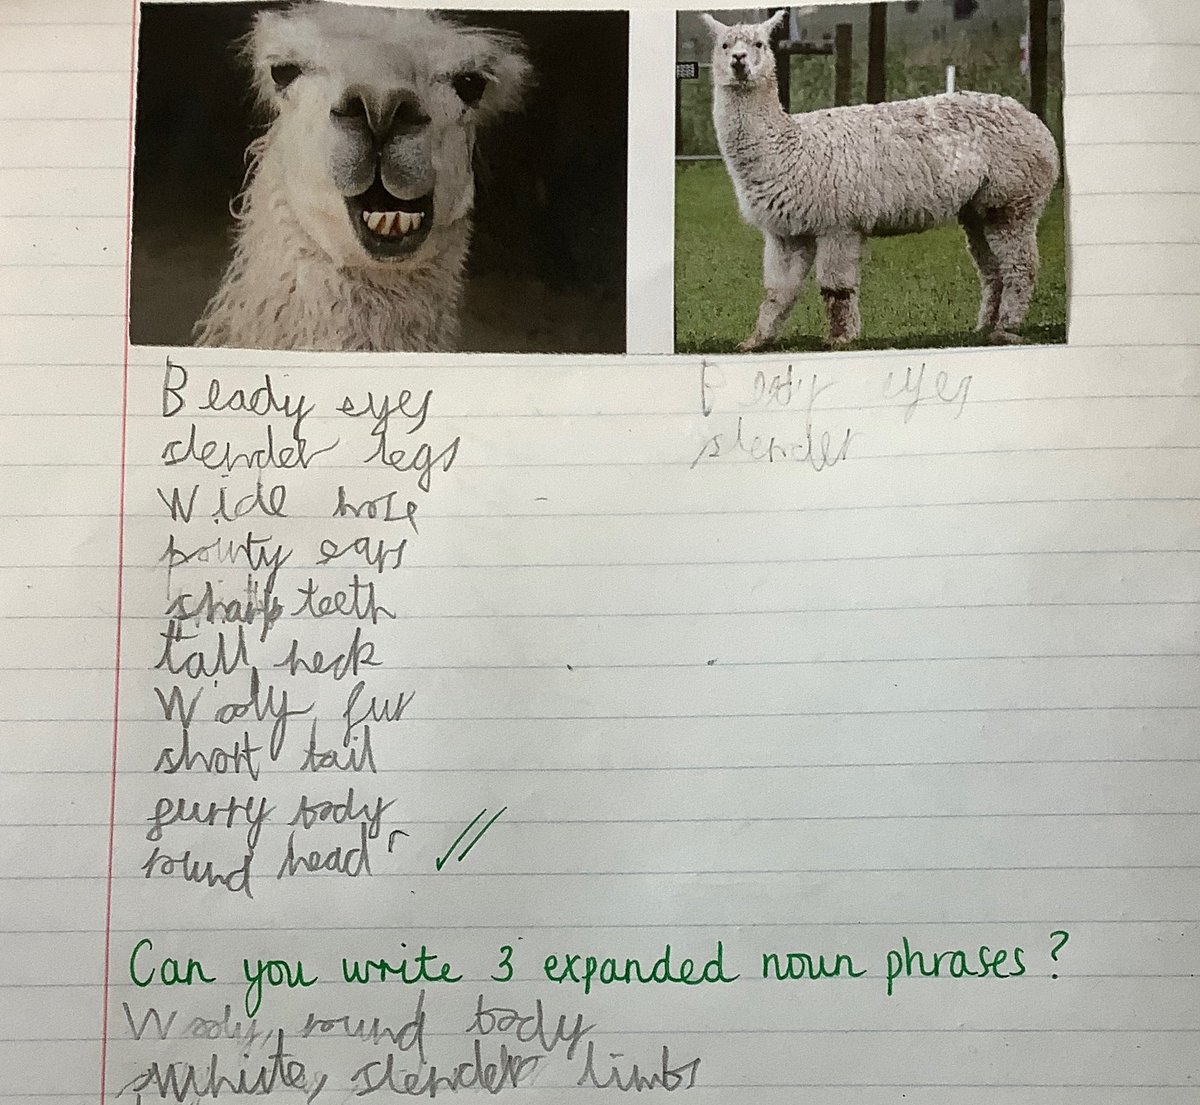 Beady eyes
slender legs
Wide nose
pointy ears
sharp teeth
tall neck
Wooly fur
short tail
furry body
round head
eyes
slender
Can you write 3 expanded noun phrases?
Wooly, round body
white, slender limbs